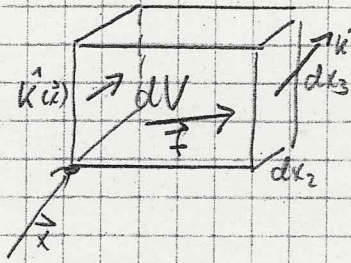 k̂(x⃗)
dV
f⃗
k̂
dx₃
dx₂
x⃗